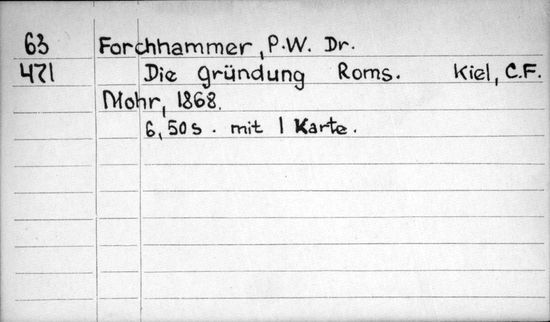 63 Forchhammer, P.W. Dr.
471 Die Gründung Roms. Kiel, C.F.
Mohr, 1868.
6,50s. mit 1 Karte.